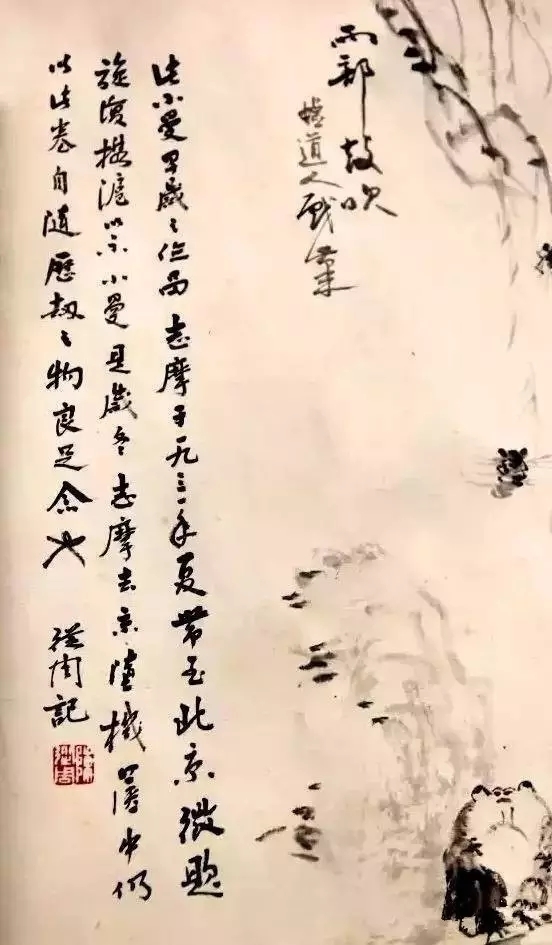 两部鼓吹
道人戲
此小曼早歲之作品志摩于一九三一年夏帶至北京徵題
旋復携滬以示小曼是歲冬志摩去京墮機篋中仍
以此卷自隨歷劫之物良足念也 從周記